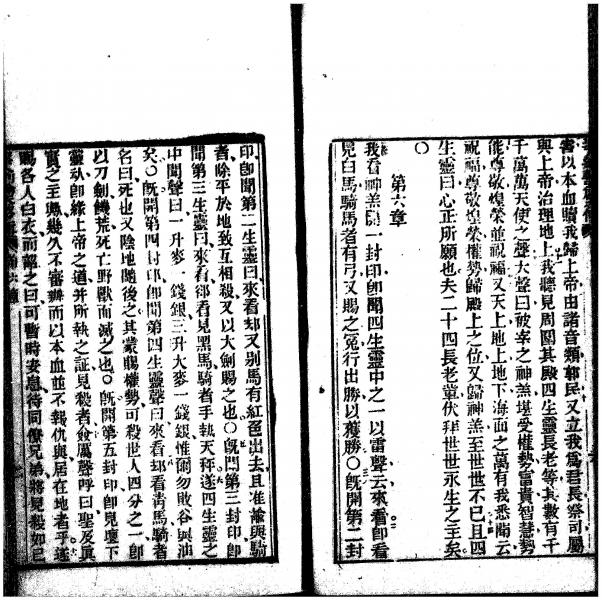 書以本血贖我歸上帝由諸音類郭民又立我爲君長祭司屬
與上帝治理地上我聽見周圍其殿四生靈長老等其數有千
千萬萬天使之聲大聲曰被宰之神羔堪受權勢富貴智慧勢
能尊敬煌榮並祝福又天上地上地下海面之萬有我悉聞云
祝福尊敬煌榮權勢歸殿上之位又歸神羔至世世不已且四
生靈曰心正所願也夫二十四長老輩伏拜世世永生之主矣
○
第六章
我看神羔開一封印卽聞四生靈中之一以雷聲云來看卽看
見白馬騎馬者有弓又賜之冕行出勝以獲勝○旣開第二封
印卽聞第二生靈曰來看却又別馬有紅色出去且准諭與騎
者除平於地致互相殺又以大劍賜之也○旣開第三封印卽
聞第三生靈曰來看卻看見黑馬騎者手執天秤遂四生靈之
中聞聲曰一升麥一錢銀三升大麥一錢銀惟爾勿敗谷與油
矣○旣開第四封印卽聞第四生靈聲曰來看却看靑馬騎者
名曰死也又陰地隨後之其蒙賜權勢可殺世人四分之一卽
以刀劍饑荒死亡野獸而滅之也○旣開第五封印卽見壇下
靈魂卽緣上帝之道并所執之証見殺者僉厲聲呼曰聖及眞
實之主歟幾久不審辦而以本血並不報仇與居在地者乎遂
賜各人白衣而諭之曰可暫時安息待同僚兄弟將見殺如己